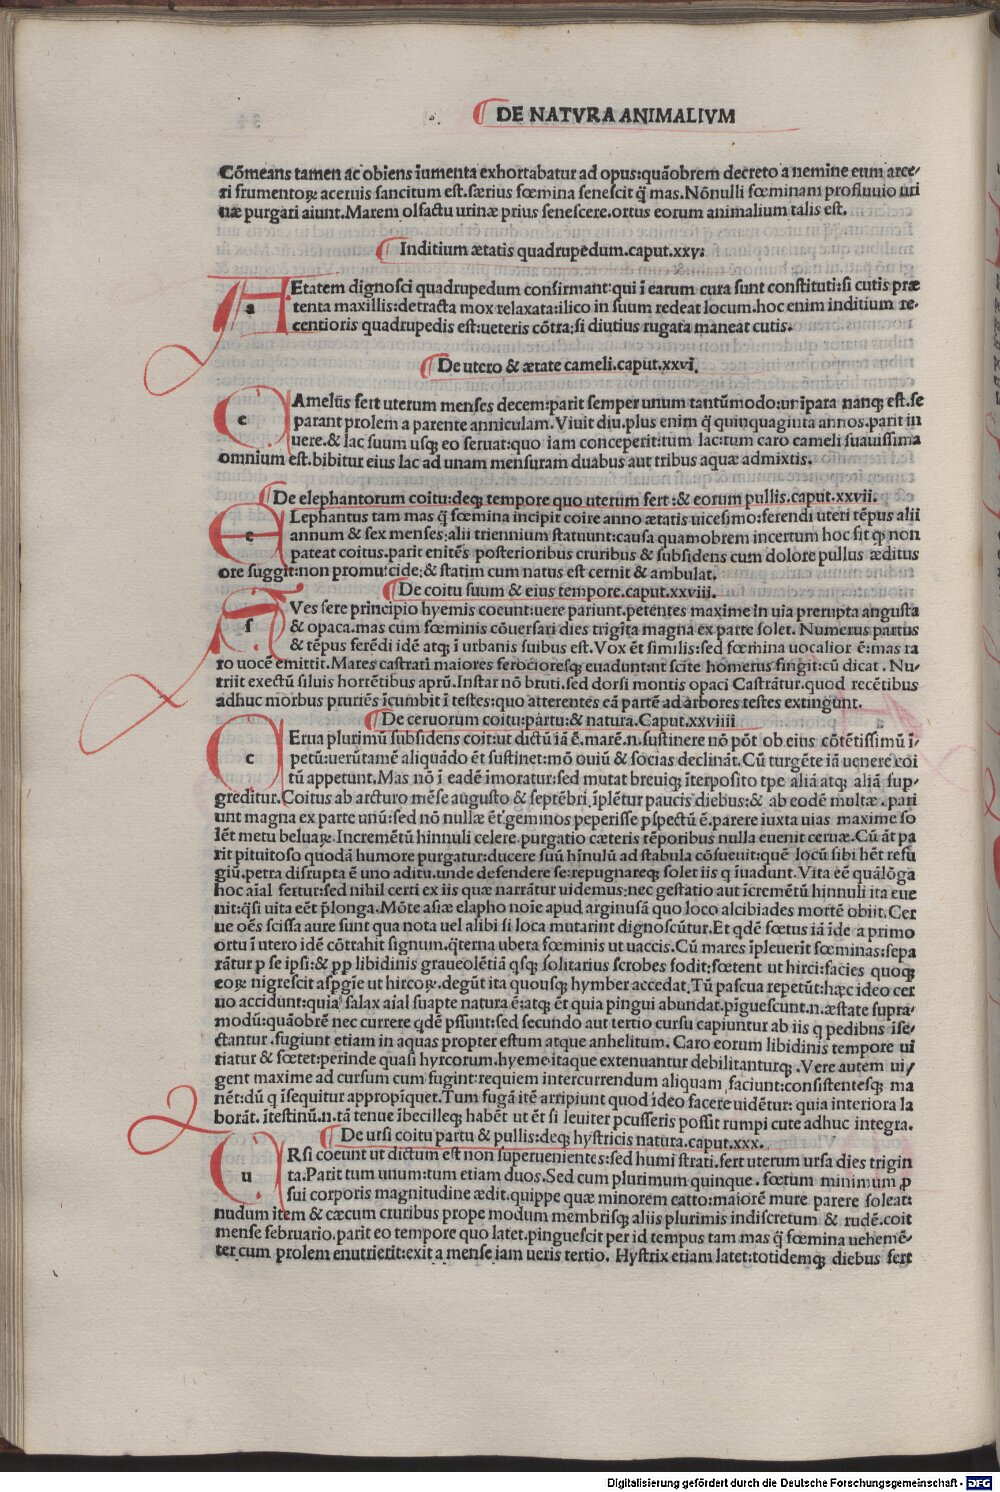 DE NATVRA ANIMALIVM
Cōmeans tamen ac obiens iumenta exhortabatur ad opus:quāobrem decreto a nemine eum arce-
ri frumentoꝝ aceruis sancitum est.særius fœmina senescit q̄ mas.Nōnulli fœminam profluuio uri
næ purgari aiunt.Marem olfactu urinæ prius senescere.ortus eorum animalium talis est.
Inditium ætatis quadrupedum.caput.xxv:
a
AEtatem dignosci quadrupedum confirmant:qui ī earum cura sunt constituti:si cutis præ
tenta maxillis:detracta mox relaxata:ilico in suum redeat locum.hoc enim inditium re-
centioris quadrupedis est:ueteris cōtra:si diutius rugata maneat cutis.
De utero & ætate cameli.caput.xxvi.
c
CAmelus fert uterum menses decem:parit semper unum tantūmodo:unipara nanqꝫ est.se
parant prolem a parente anniculam.Viuit diu.plus enim q̄ quinquaginta annos.parit in
uere.& lac suum usqꝫ eo seruat:quo iam conceperit:tum lac:tum caro cameli suauissima
omnium est.bibitur eius lac ad unam mensuram duabus aut tribus aquæ admixtis.
De elephantorum coitu:deqꝫ tempore quo uterum fert:& eorum pullis.caput.xxvii.
e
ELephantus tam mas q̄ fœmina incipit coire anno ætatis uicesimo:ferendi uteri tēpus alii
annum & sex menses:alii triennium statuunt:causa quamobrem incertum hoc sit qꝫ non
pateat coitus.parit enitēs posterioribus cruribus & subsidens cum dolore pullus æditus
ore suggit:non promuscide:& statim cum natus est cernit & ambulat.
De coitu suum & eius tempore.caput.xxviii.
f
Ves fere principio hyemis coeunt:uere pariunt.petentes maxime in uia prerupta angusta
& opaca.mas cum fœminis cōuersari dies trigīta magna ex parte solet. Numerus partus
& tēpus ferēdi idē atqꝫ ī urbanis suibus est.Vox ēt similis:sed fœmina uocalior ē:mas ra
ro uocē emittit.Mares castrati maiores ferocioresqꝫ euadunt:ut scite homerus fingit:cū dicat . Nu-
triit exectū siluis horrētibus aprū.Instar nō bruti.sed dorsi montis opaci Castrātur.quod recētibus
adhuc morbus pruriēs īcumbit ī testes:quo atterentes eā partē ad arbores testes extingunt.
De ceruorum coitu:partu:& natura.Caput.xxviiii
c
CErua plurimū subsidens coit:ut dictū iā ē.marē.n.sustinere nō pōt ob eius cōtētissimū ī-
petū:uerūtamē aliquādo ēt sustinet:mō ouiū & socias declināt.Cū turgēte iā uenere coi
tū appetunt.Mas nō ī eadē imoratur:sed mutat breuiqꝫ īterposito tpe aliā atqꝫ aliā sup-
greditur.Coitus ab arcturo mēse augusto & septēbri īplētur paucis diebus:& ab eodē multæ . pari
unt magna ex parte unū:sed nō nullæ ēt geminos peperisse pspectū ē.parere iuxta uias maxime so
lēt metu beluaꝝ.Incremētū hinnuli celere.purgatio cæteris tēporibus nulla euenit ceruæ.Cū āt pa
rit pituitoso quodā humore purgatur:ducere suū hīnulū ad stabula cōsueuit:quē locū sibi hēt refu
giū.petra disrupta ē uno aditu.unde defendere se:repugnareqꝫ solet iis q īuadunt.Vita eē quālōga
hoc aīal fertur:sed nihil certi ex iis quæ narrātur uidemus:nec gestatio aut īcremētū hinnuli ita eue
nit:q̄si uita eēt plonga.Mōte asiæ elapho noīe apud arginusā quo loco alcibiades mortē obiit.Cer
ue oēs scissa aure sunt qua nota uel alibi si loca mutarint dignoscūtur.Et qdē fœtus iā īde a primo
ortu ī utero idē cōtrahit signum.q̄terna ubera fœminis ut uaccis.Cū mares īpleuerīt fœminas:sepa
rātur p se ipsi:& pp libidinis graueolētiā qsqꝫ solitarius scrobes fodit:fœtent ut hirci:facies quoqꝫ
eoꝝ nigrescit aspgīe ut hircoꝝ.degūt ita quousqꝫ hymber accedat.Tū pascua repetūt:hæc ideo cer
uo accidunt:quia salax aīal suapte natura ē:atqꝫ ēt quia pingui abundat.pīguescunt.n.æstate supra-
modū:quāobrē nec currere qdē pssunt:sed secundo aut tertio cursu capiuntur ab iis q pedibus īse-
ctantur.fugiunt etiam in aquas propter estum atque anhelitum. Caro eorum libidinis tempore ui
tiatur & fœtet:perinde quasi hyrcorum.hyeme itaque extenuantur debilitanturqꝫ.Vere autem ui-
gent maxime ad cursum cum fugint:requiem intercurrendum aliquam faciunt:consistentesqꝫ ma
nēt:dū q īsequitur appropīquet.Tum fugā itē arripiunt quod īdeo facere uidētur: quia interiora la
borāt. ītestinū.n.tā tenue ībecilleqꝫ habēt ut ēt si leuiter pcusseris possit rumpi cute adhuc integra.
De ursi coitu partu & pullis:deqꝫ hystricis natura.caput.xxx.
u
URSi coeunt ut dictum est non superuenientes:sed humi strati.fert uterum ursa dies trigin
ta.Parit tum unum:tum etiam duos.Sed cum plurimum quinque. fœtum minimum p
sui corporis magnitudine ædit.quippe quæ minorem catto:maiorē mure parere soleat:
nudum item & cæcum cruribus prope modum membrisqꝫ aliis plurimis indiscretum & rudē.coit
mense februario.parit eo tempore quo latet.pinguescit per id tempus tam mas q̄ fœmina uehemē-
ter cum prolem enutrierit:exit a mense iam ueris tertio. Hystrix etiam latet:totidemqꝫ diebus fert
Digitalisierung gefördert durch die Deutsche Forschungsgemeinschaft - DFG